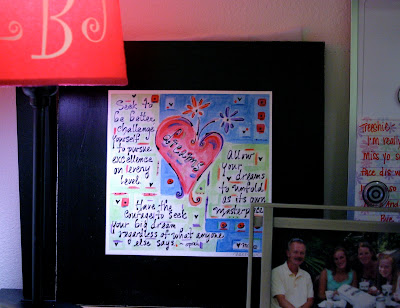 B
Seek to
be better,
challenge
yourself
to pursue
excellence
on every
level.
Allow
your
dreams
to unfold
as its own
masterpiece
Have the
courage to seek
your big dream
regardless of what anyone
else says.
I'm really
Miss yo